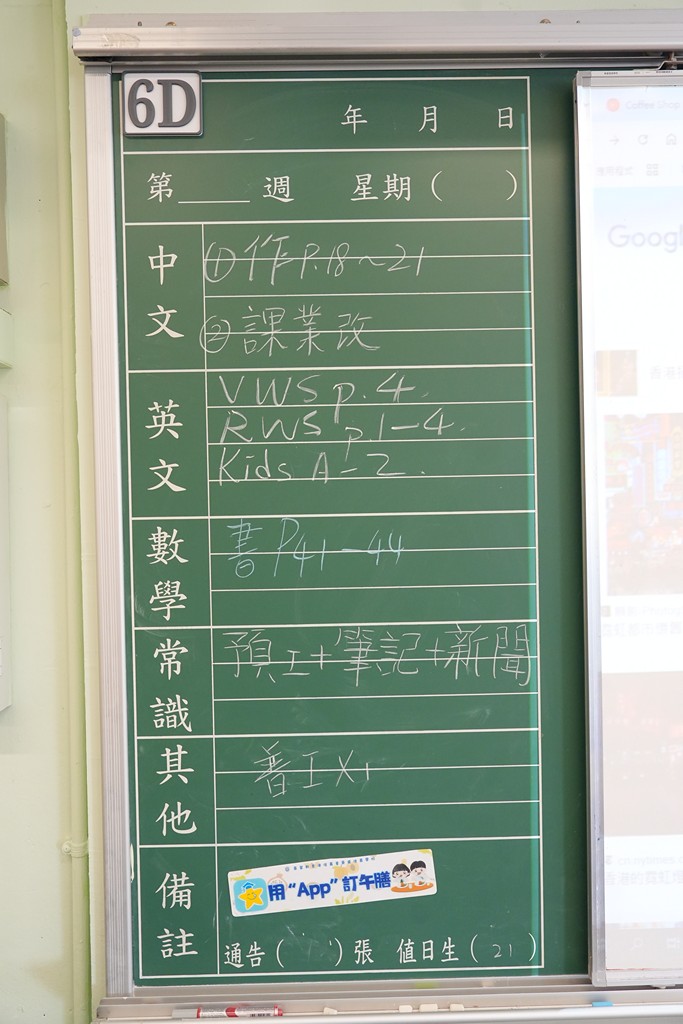 6D
年 月 日
第____週 星期( )
中文
①作P.18~21
②課業改
英文
VWS p.4.
RWS p.1-4.
Kids A-2.
數學
書P41-44
常識
預工+筆記+新聞
其他
普工X1
備註
用“App”訂午膳
通告( )張 值日生(21)
Coffee Shop
Googl